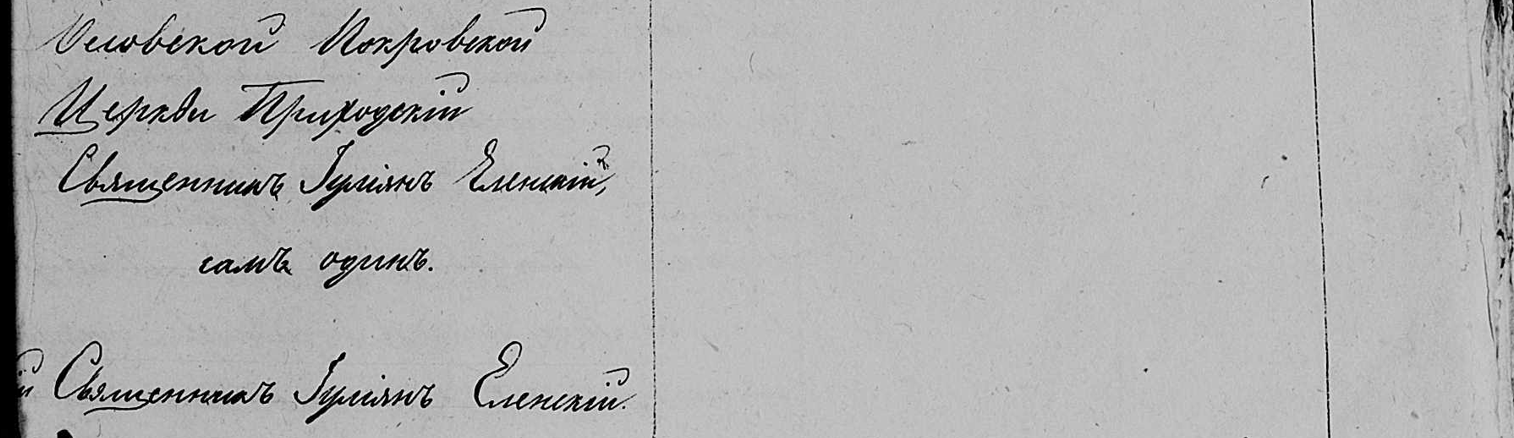 Осовской Покровской
Церкви Приходскій
Священникъ Іуліянъ Еленскій,
самъ одинъ.
й Священникъ Іуліянъ Еленскій.